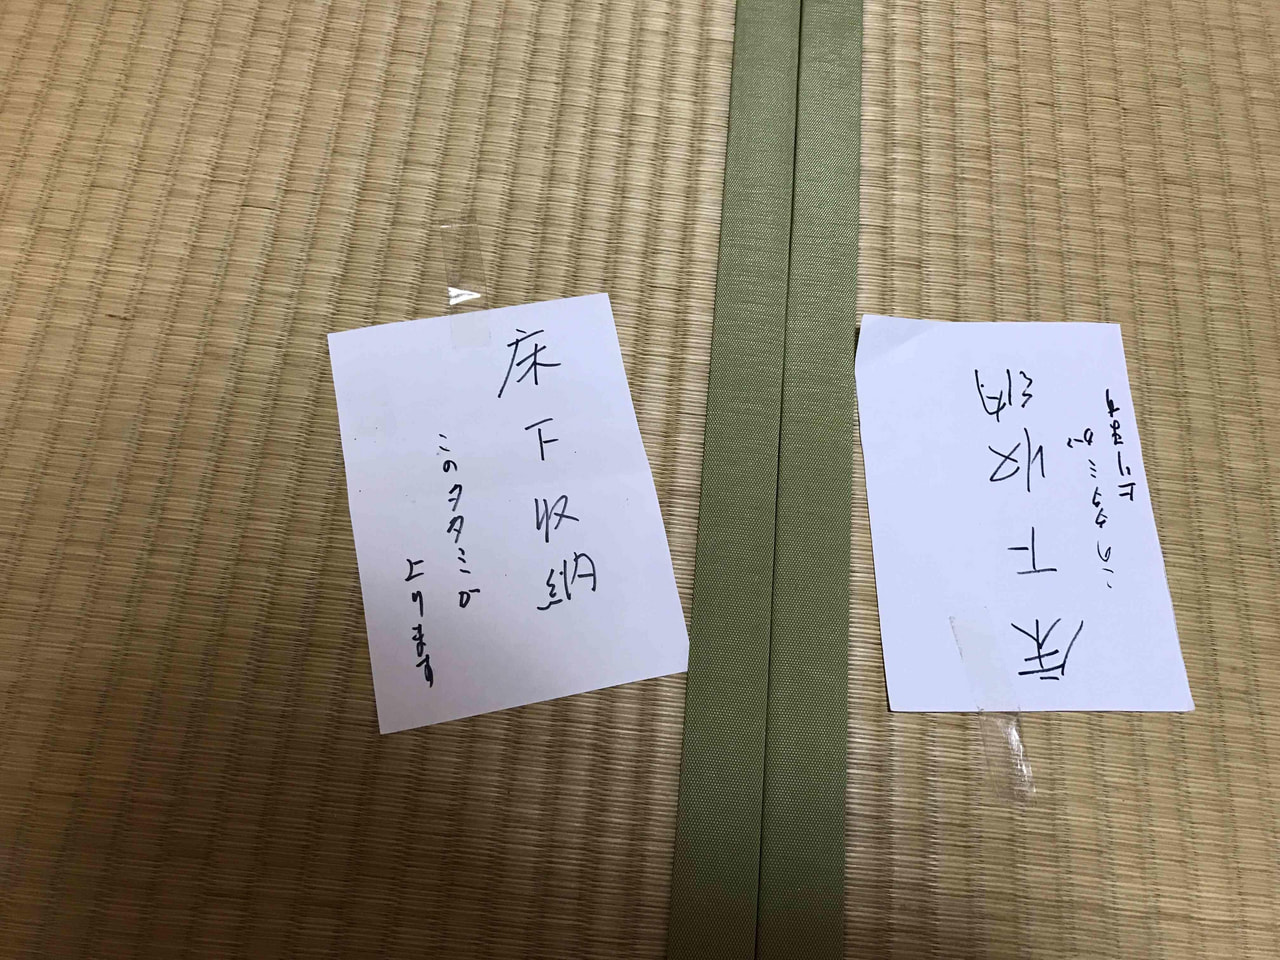 床下収納
このタタミが
上ります
床下収納
このタタミが
上ります